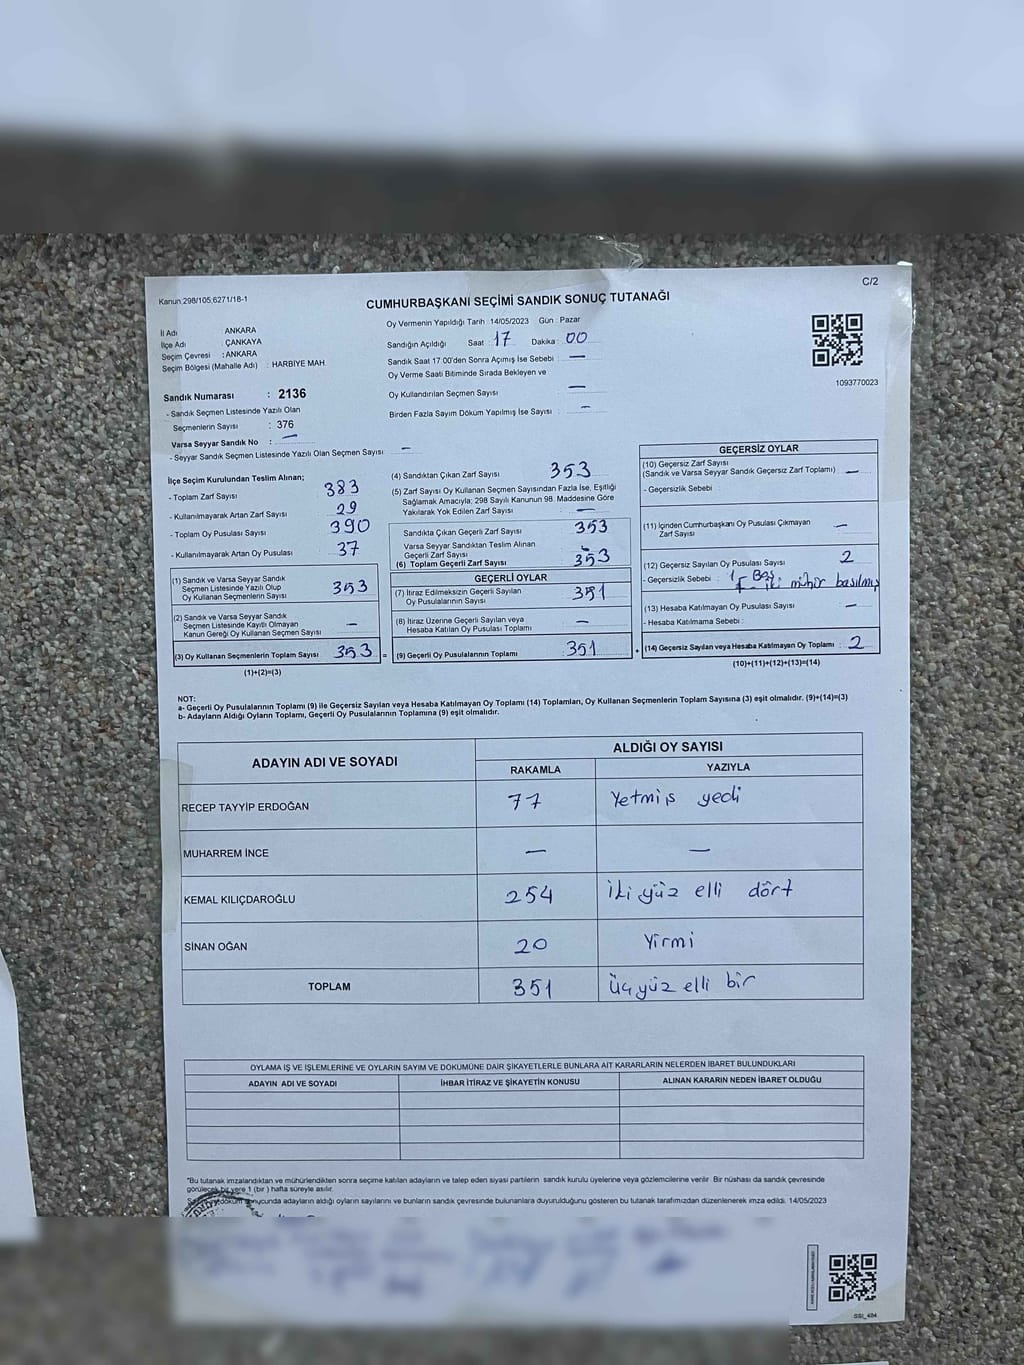 Kanun 298/105;6271/18-1
C/2
CUMHURBAŞKANI SEÇİMİ SANDIK SONUÇ TUTANAĞI
İl Adı ANKARA
İlçe Adı ÇANKAYA
Seçim Çevresi : ANKARA
Seçim Bölgesi (Mahalle Adı) : HARBİYE MAH.
Sandık Numarası : 2136
- Sandık Seçmen Listesinde Yazılı Olan
Seçmenlerin Sayısı : 376
Varsa Seyyar Sandık No : —
- Seyyar Sandık Seçmen Listesinde Yazılı Olan Seçmen Sayısı —
Oy Vermenin Yapıldığı Tarih : 14/05/2023 Gün : Pazar
Sandığın Açıldığı Saat : 17 Dakika : 00
Sandık Saat 17:00'den Sonra Açımış İse Sebebi : —
Oy Verme Saati Bitiminde Sırada Bekleyen ve
Oy Kullandırılan Seçmen Sayısı —
Birden Fazla Sayım Döküm Yapılmış İse Sayısı : —
1093770023
İlçe Seçim Kurulundan Teslim Alınan;
- Toplam Zarf Sayısı 383
- Kullanılmayarak Artan Zarf Sayısı 29
- Toplam Oy Pusulası Sayısı 390
- Kullanılmayarak Artan Oy Pusulası 37
(1) Sandık ve Varsa Seyyar Sandık
Seçmen Listesinde Yazılı Olup
Oy Kullanan Seçmenlerin Sayısı 353
(2) Sandık ve Varsa Seyyar Sandık
Seçmen Listesinde Kayıtlı Olmayan
Kanun Gereği Oy Kullanan Seçmen Sayısı —
(3) Oy Kullanan Seçmenlerin Toplam Sayısı 353 =
(1)+(2)=(3)
(4) Sandıktan Çıkan Zarf Sayısı 353
(5) Zarf Sayısı Oy Kullanan Seçmen Sayısından Fazla İse, Eşitliği
Sağlamak Amacıyla; 298 Sayılı Kanunun 98. Maddesine Göre
Yakılarak Yok Edilen Zarf Sayısı : —
Sandıkta Çıkan Geçerli Zarf Sayısı 353
Varsa Seyyar Sandıktan Teslim Alınan
Geçerli Zarf Sayısı —
(6) Toplam Geçerli Zarf Sayısı : 353
GEÇERLİ OYLAR
(7) İtiraz Edilmeksizin Geçerli Sayılan
Oy Pusulalarının Sayısı : 351
(8) İtiraz Üzerine Geçerli Sayılan veya
Hesaba Katılan Oy Pusulası Toplamı —
(9) Geçerli Oy Pusulalarının Toplamı : 351 +
GEÇERSİZ OYLAR
(10) Geçersiz Zarf Sayısı
(Sandık ve Varsa Seyyar Sandık Geçersiz Zarf Toplamı) —
- Geçersizlik Sebebi :
(11) İçinden Cumhurbaşkanı Oy Pusulası Çıkmayan
Zarf Sayısı —
(12) Geçersiz Sayılan Oy Pusulası Sayısı 2
- Geçersizlik Sebebi : 1- Boş
1- iki mühür basılmış
(13) Hesaba Katılmayan Oy Pusulası Sayısı —
- Hesaba Katılmama Sebebi :
(14) Geçersiz Sayılan veya Hesaba Katılmayan Oy Toplamı : 2
(10)+(11)+(12)+(13)=(14)
NOT:
a- Geçerli Oy Pusulalarının Toplamı (9) ile Geçersiz Sayılan veya Hesaba Katılmayan Oy Toplamı (14) Toplamları, Oy Kullanan Seçmenlerin Toplam Sayısına (3) eşit olmalıdır. (9)+(14)=(3)
b- Adayların Aldığı Oyların Toplamı, Geçerli Oy Pusulalarının Toplamına (9) eşit olmalıdır.
ADAYIN ADI VE SOYADI ALDIĞI OY SAYISI
RAKAMLA YAZIYLA
RECEP TAYYİP ERDOĞAN 77 Yetmiş yedi
MUHARREM İNCE — —
KEMAL KILIÇDAROĞLU 254 iki yüz elli dört
SİNAN OĞAN 20 Yirmi
TOPLAM 351 Üç yüz elli bir
OYLAMA İŞ VE İŞLEMLERİNE VE OYLARIN SAYIM VE DÖKÜMÜNE DAİR ŞİKAYETLERLE BUNLARA AİT KARARLARIN NELERDEN İBARET BULUNDUKLARI
ADAYIN ADI VE SOYADI İHBAR İTİRAZ VE ŞİKAYETİN KONUSU ALINAN KARARIN NEDEN İBARET OLDUĞU
*Bu tutanak imzalandıktan ve mühürlendikten sonra seçime katılan adayların ve talep eden siyasi partilerin sandık kurulu üyelerine veya gözlemcilerine verilir. Bir nüshası da sandık çevresinde
görülecek bir yere 1 (bir) hafta süreyle asılır.
döküm sonucunda adayların aldığı oyların sayılarını ve bunların sandık çevresinde bulunanlara duyurulduğunu gösteren bu tutanak tarafımızdan düzenlenerek imza edildi. 14/05/2023
SSI_404